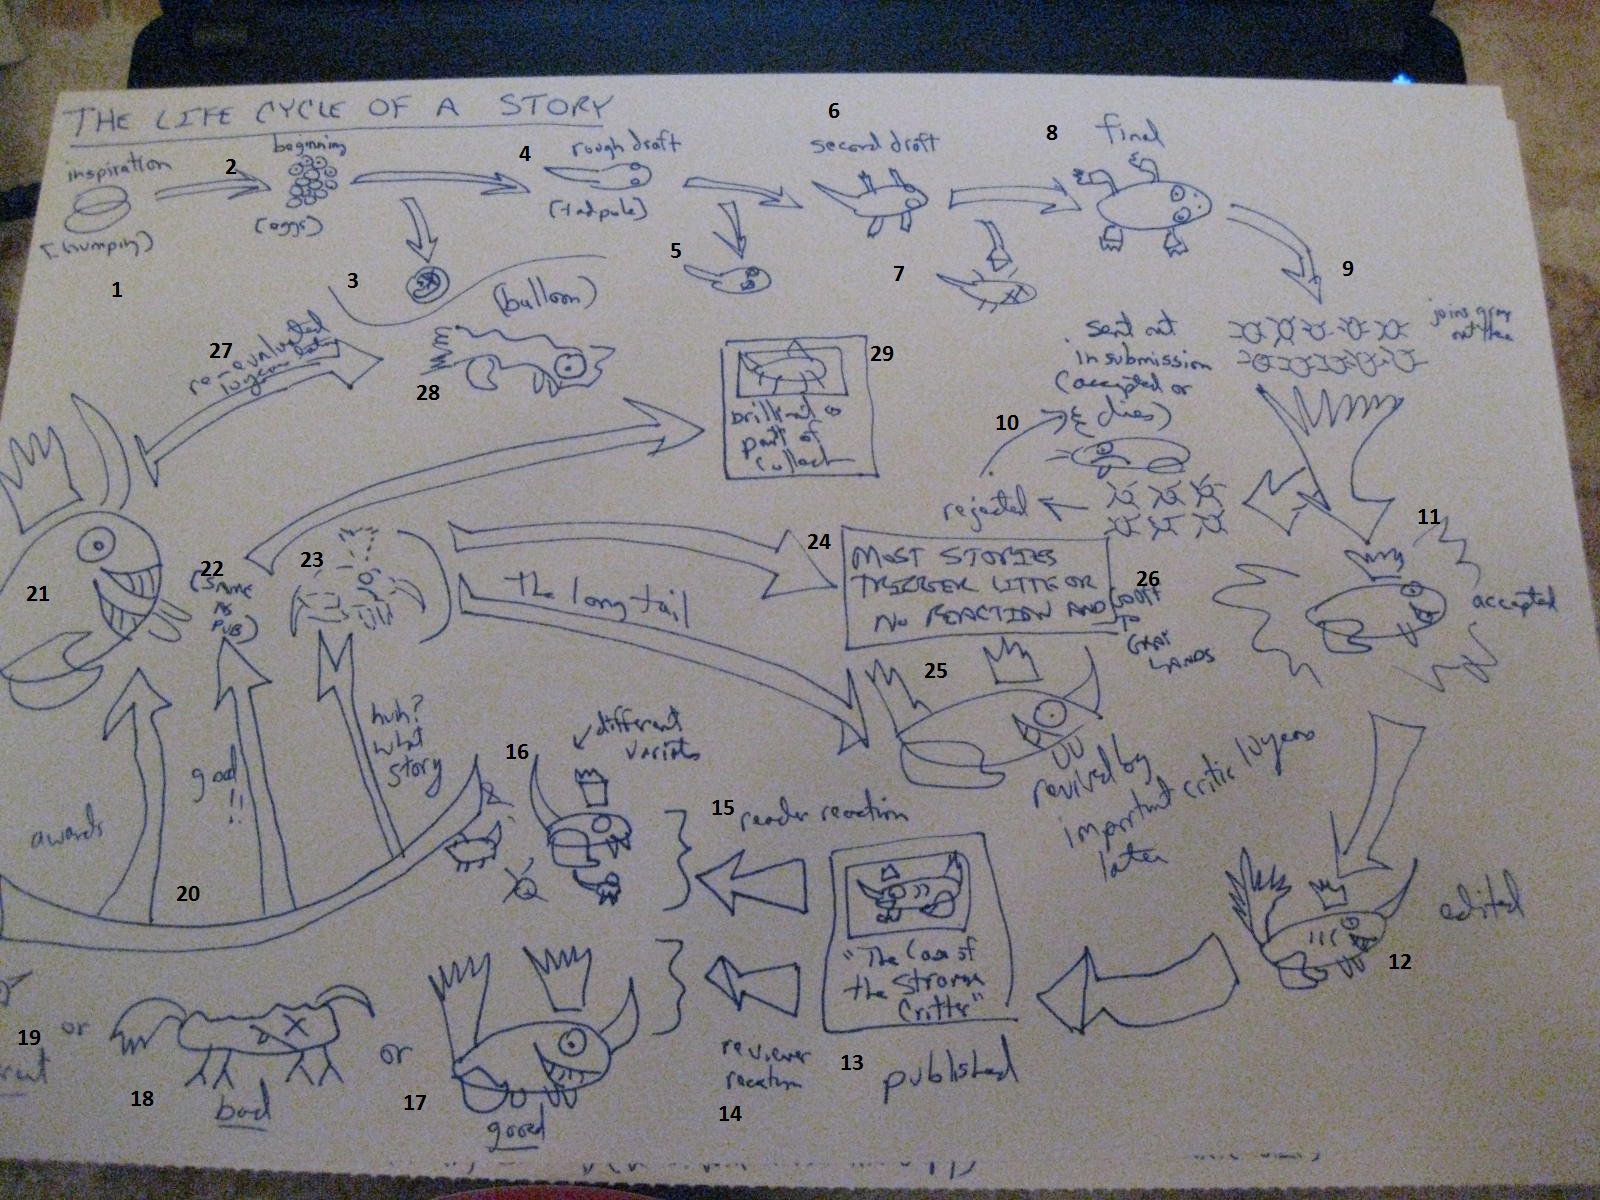 THE LIFE CYCLE OF A STORY
inspiration
(humping)
1
2
beginning
(eggs)
3
4
rough draft
(tadpole)
5
6
second draft
7
8
final
9
joins
sent out
in submission
(accepted or
dies)
10
rejected
11
accepted
12
edited
13
published
"The Case of
the
Critter"
14
reviewer
reaction
15
reader reaction
16
different
17
good
or
18
bad
or
19
20
awards
good
!!
huh?
what
story
21
22
(SAME
AS
PUB)
23
The long tail
24
MOST STORIES
TRIGGER LITTE OR
NO REACTION AND
26
GO OFF
TO
GRAY
LANDS
25
revived by
important critic 10 years
later
27
re-evaluated
10 years later
28
(balloon)
29
part of